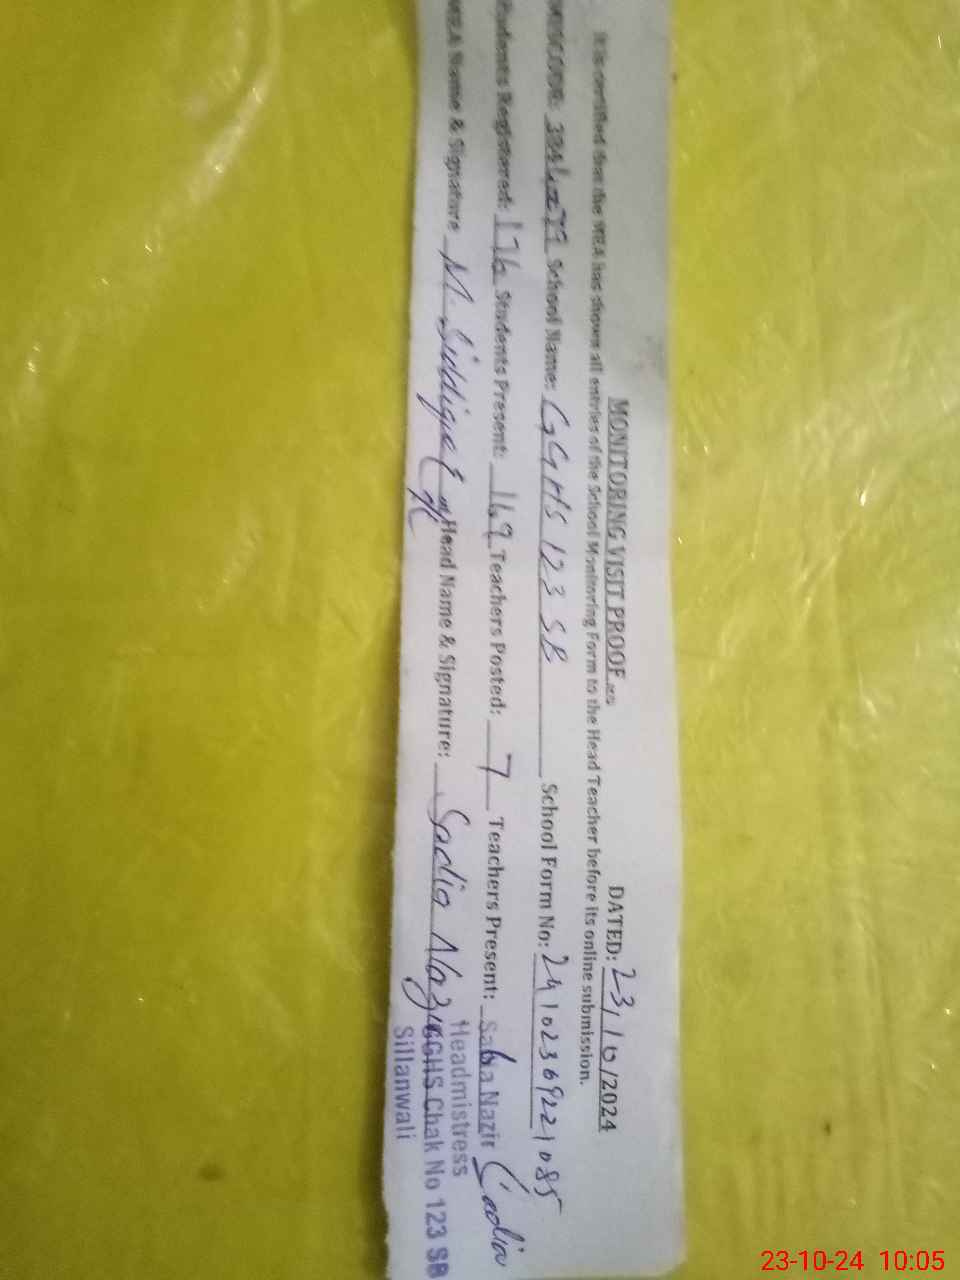 MONITORING VISIT PROOF DATED: 23/10/2024
It is certified that the MEA has shown all entries of the School Monitoring Form to the Head Teacher before its online submission.
School Name: GGHS 123 SB School Form No: 24102369221085
Students Registered: 176 Students Present: 169 Teachers Posted: 7 Teachers Present:
MEA Name & Signature M. Siddique Head Name & Signature: Sadia Nazir
Nazir Sadia
Headmistress
GGHS Chak No 123 SB
Sillanwali
23-10-24 10:05